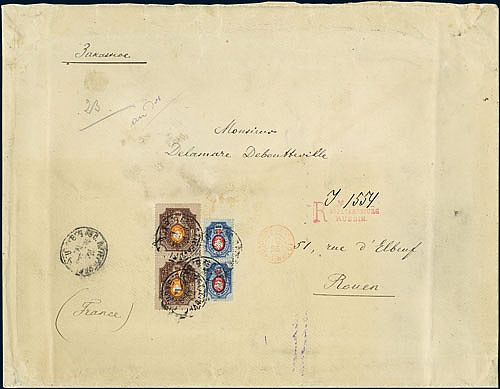 Заказное
23
Monsieur
Delamare Deboutteville
J-1554
R
RUSSIE.
51, rue d'Elbeuf
Rouen
(France)